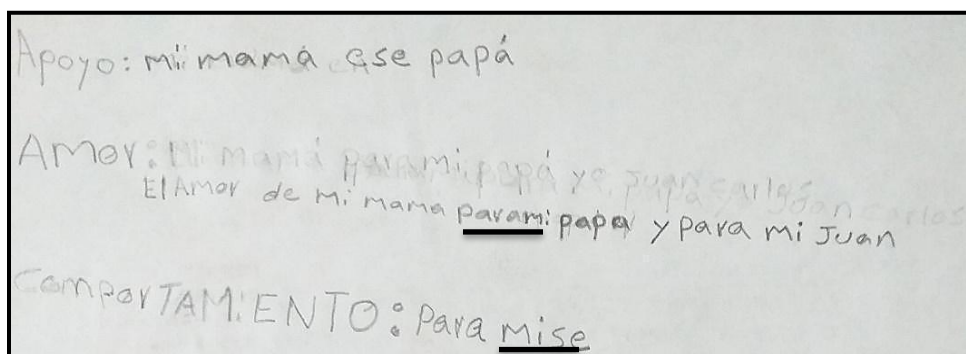 Apoyo: mi mamá ese papá
Amor: Mi mamá para mi papá ye juan carlos
El Amor de mi mama parami papa y para mi Juan
ComporTAMIENTO: para mise